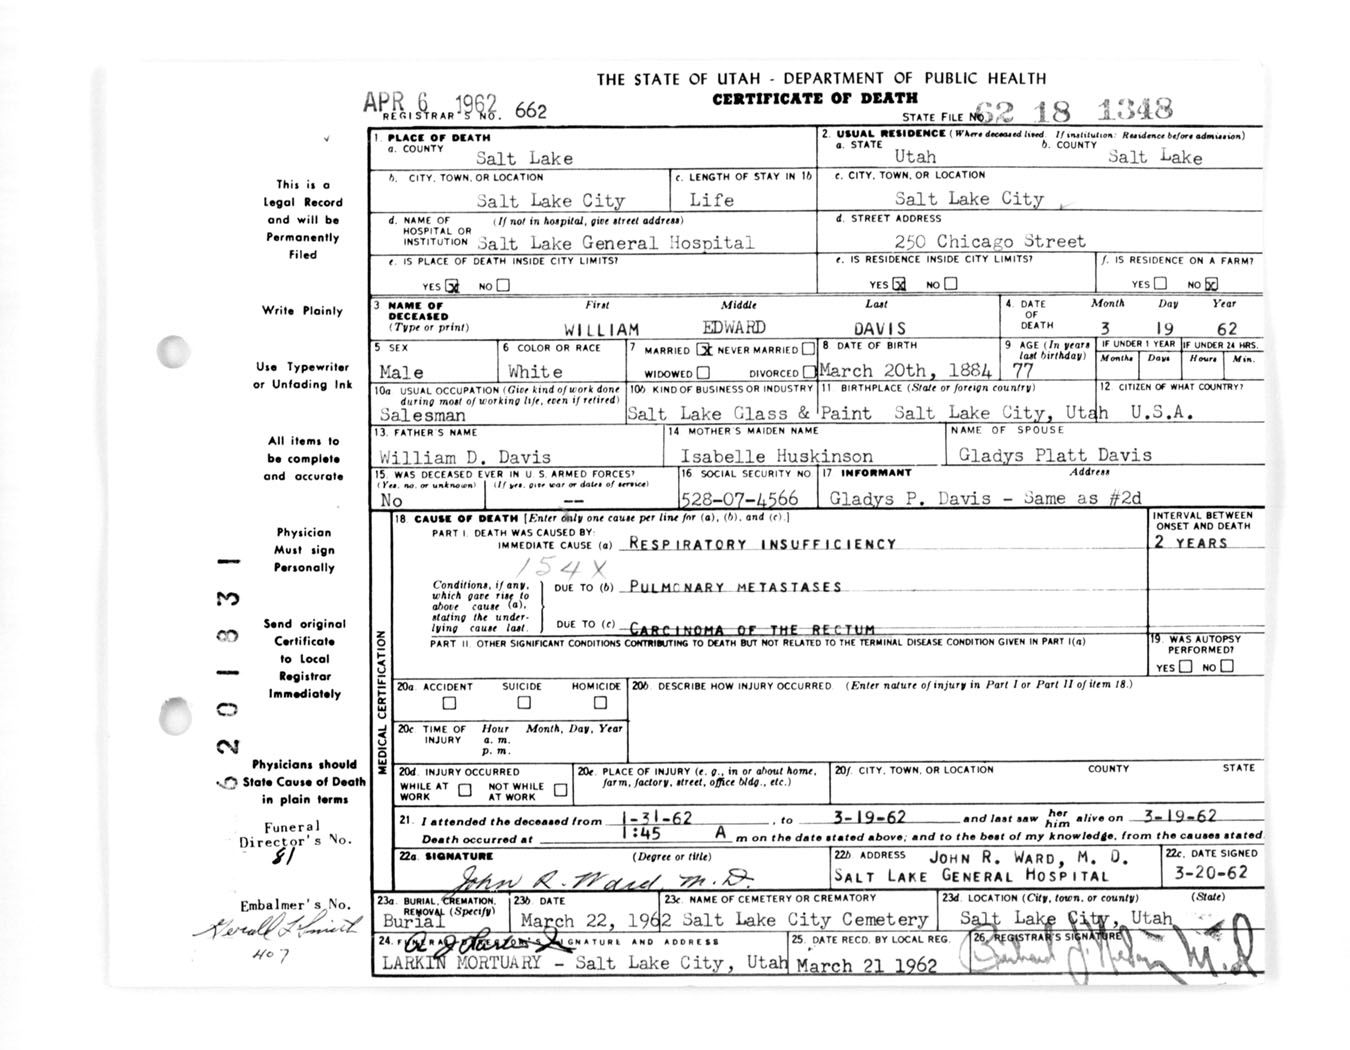 THE STATE OF UTAH - DEPARTMENT OF PUBLIC HEALTH
CERTIFICATE OF DEATH
APR 6 1962
REGISTRAR'S NO. 662
STATE FILE NO. 62 18 1348
1. PLACE OF DEATH
a. COUNTY
Salt Lake
2. USUAL RESIDENCE (Where deceased lived. If institution: Residence before admission)
a. STATE b. COUNTY
Utah Salt Lake
b. CITY, TOWN, OR LOCATION
Salt Lake City
c. LENGTH OF STAY IN 1b
Life
c. CITY, TOWN, OR LOCATION
Salt Lake City
d. NAME OF (If not in hospital, give street address)
HOSPITAL OR
INSTITUTION Salt Lake General Hospital
d. STREET ADDRESS
250 Chicago Street
e. IS PLACE OF DEATH INSIDE CITY LIMITS?
YES X NO
e. IS RESIDENCE INSIDE CITY LIMITS?
YES X NO
f. IS RESIDENCE ON A FARM?
YES NO X
3 NAME OF DECEASED (Type or print)
First Middle Last
WILLIAM EDWARD DAVIS
4. DATE OF DEATH
Month Day Year
3 19 62
5 SEX
Male
6 COLOR OR RACE
White
7 MARRIED X NEVER MARRIED
WIDOWED DIVORCED
8 DATE OF BIRTH
March 20th, 1884
9 AGE (In years last birthday)
77
IF UNDER 1 YEAR
Months Days
IF UNDER 24 HRS.
Hours Min.
10a USUAL OCCUPATION (Give kind of work done
during most of working life, even if retired)
Salesman
10b KIND OF BUSINESS OR INDUSTRY
Salt Lake Glass & Paint
11 BIRTHPLACE (State or foreign country)
Salt Lake City, Utah
12 CITIZEN OF WHAT COUNTRY?
U.S.A.
13. FATHER'S NAME
William D. Davis
14 MOTHER'S MAIDEN NAME
Isabelle Huskinson
NAME OF SPOUSE
Gladys Platt Davis
15. WAS DECEASED EVER IN U.S. ARMED FORCES?
(Yes, no. or unknown) (If yes, give war or dates of service)
No --
16 SOCIAL SECURITY NO.
528-07-4566
17 INFORMANT Address
Gladys P. Davis - Same as #2d
18 CAUSE OF DEATH [Enter only one cause per line for (a), (b), and (c).]
PART I. DEATH WAS CAUSED BY:
IMMEDIATE CAUSE (a) RESPIRATORY INSUFFICIENCY
INTERVAL BETWEEN
ONSET AND DEATH
2 YEARS
154X
Conditions, if any,
which gave rise to
above cause (a),
stating the under-
lying cause last.
DUE TO (b) PULMONARY METASTASES
DUE TO (c) CARCINOMA OF THE RECTUM
PART II. OTHER SIGNIFICANT CONDITIONS CONTRIBUTING TO DEATH BUT NOT RELATED TO THE TERMINAL DISEASE CONDITION GIVEN IN PART I(a)
19. WAS AUTOPSY
PERFORMED?
YES NO
MEDICAL CERTIFICATION
20a. ACCIDENT SUICIDE HOMICIDE
20b. DESCRIBE HOW INJURY OCCURRED. (Enter nature of injury in Part I or Part II of item 18.)
20c TIME OF INJURY
Hour Month, Day, Year
a. m.
p. m.
20d. INJURY OCCURRED
WHILE AT WORK NOT WHILE AT WORK
20e. PLACE OF INJURY (e. g., in or about home,
farm, factory, street, office bldg., etc.)
20f. CITY, TOWN, OR LOCATION COUNTY STATE
21. I attended the deceased from 1-31-62, to 3-19-62 and last saw her him alive on 3-19-62
Death occurred at 1:45 A m on the date stated above; and to the best of my knowledge, from the causes stated.
22a. SIGNATURE (Degree or title)
John R. Ward, M. D.
22b ADDRESS JOHN R. WARD, M. D.
SALT LAKE GENERAL HOSPITAL
22c. DATE SIGNED
3-20-62
23a. BURIAL, CREMATION, REMOVAL (Specify)
Burial
23b. DATE
March 22, 1962
23c. NAME OF CEMETERY OR CREMATORY
Salt Lake City Cemetery
23d. LOCATION (City, town, or county) (State)
Salt Lake City, Utah
24. FUNERAL DIRECTOR'S SIGNATURE AND ADDRESS
LARKIN MORTUARY - Salt Lake City, Utah
25. DATE RECD. BY LOCAL REG.
March 21 1962
26. REGISTRAR'S SIGNATURE
This is a
Legal Record
and will be
Permanently
Filed
Write Plainly
Use Typewriter
or Unfading Ink
All items to
be complete
and accurate
Physician
Must sign
Personally
Send original
Certificate
to Local
Registrar
Immediately
Physicians should
State Cause of Death
in plain terms
Funeral
Director's No.
81
Embalmer's No.
407